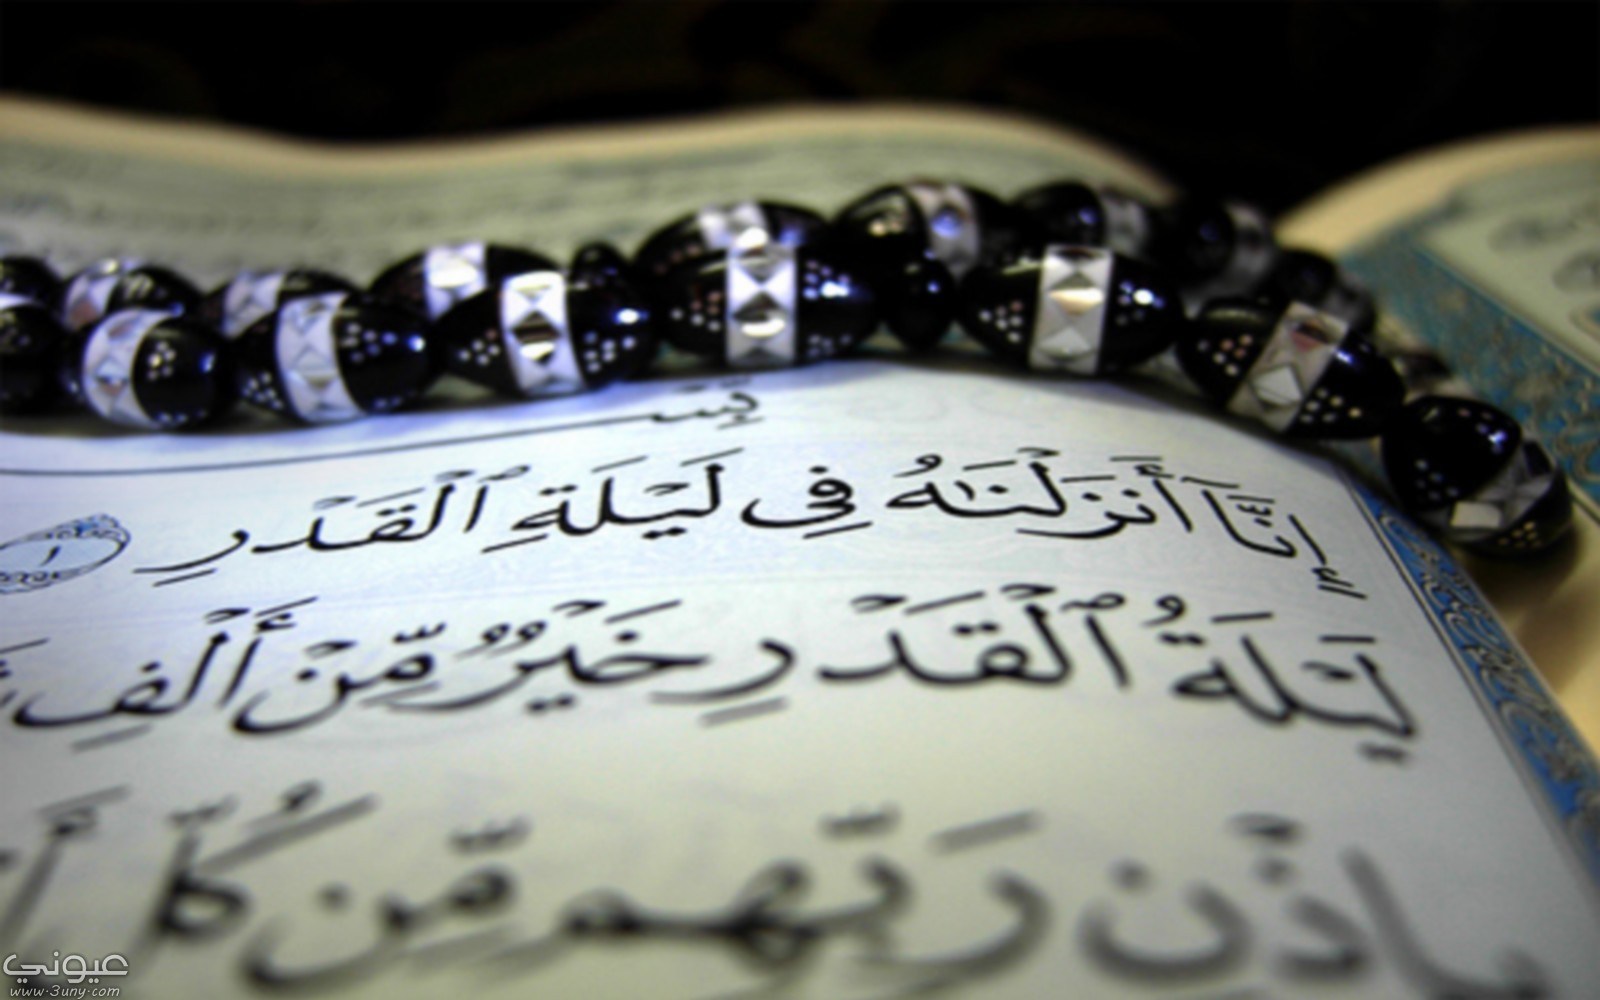 بِسْ
إِنَّآ أَنزَلْنَٰهُ فِى لَيْلَةِ ٱلْقَدْرِ ١
لَيْلَةُ ٱلْقَدْرِ خَيْرٌ مِّنْ أَلْفِ
بِإِذْنِ رَبِّهِم مِّن كُلِّ أَ
عيوني
www.3uny.com